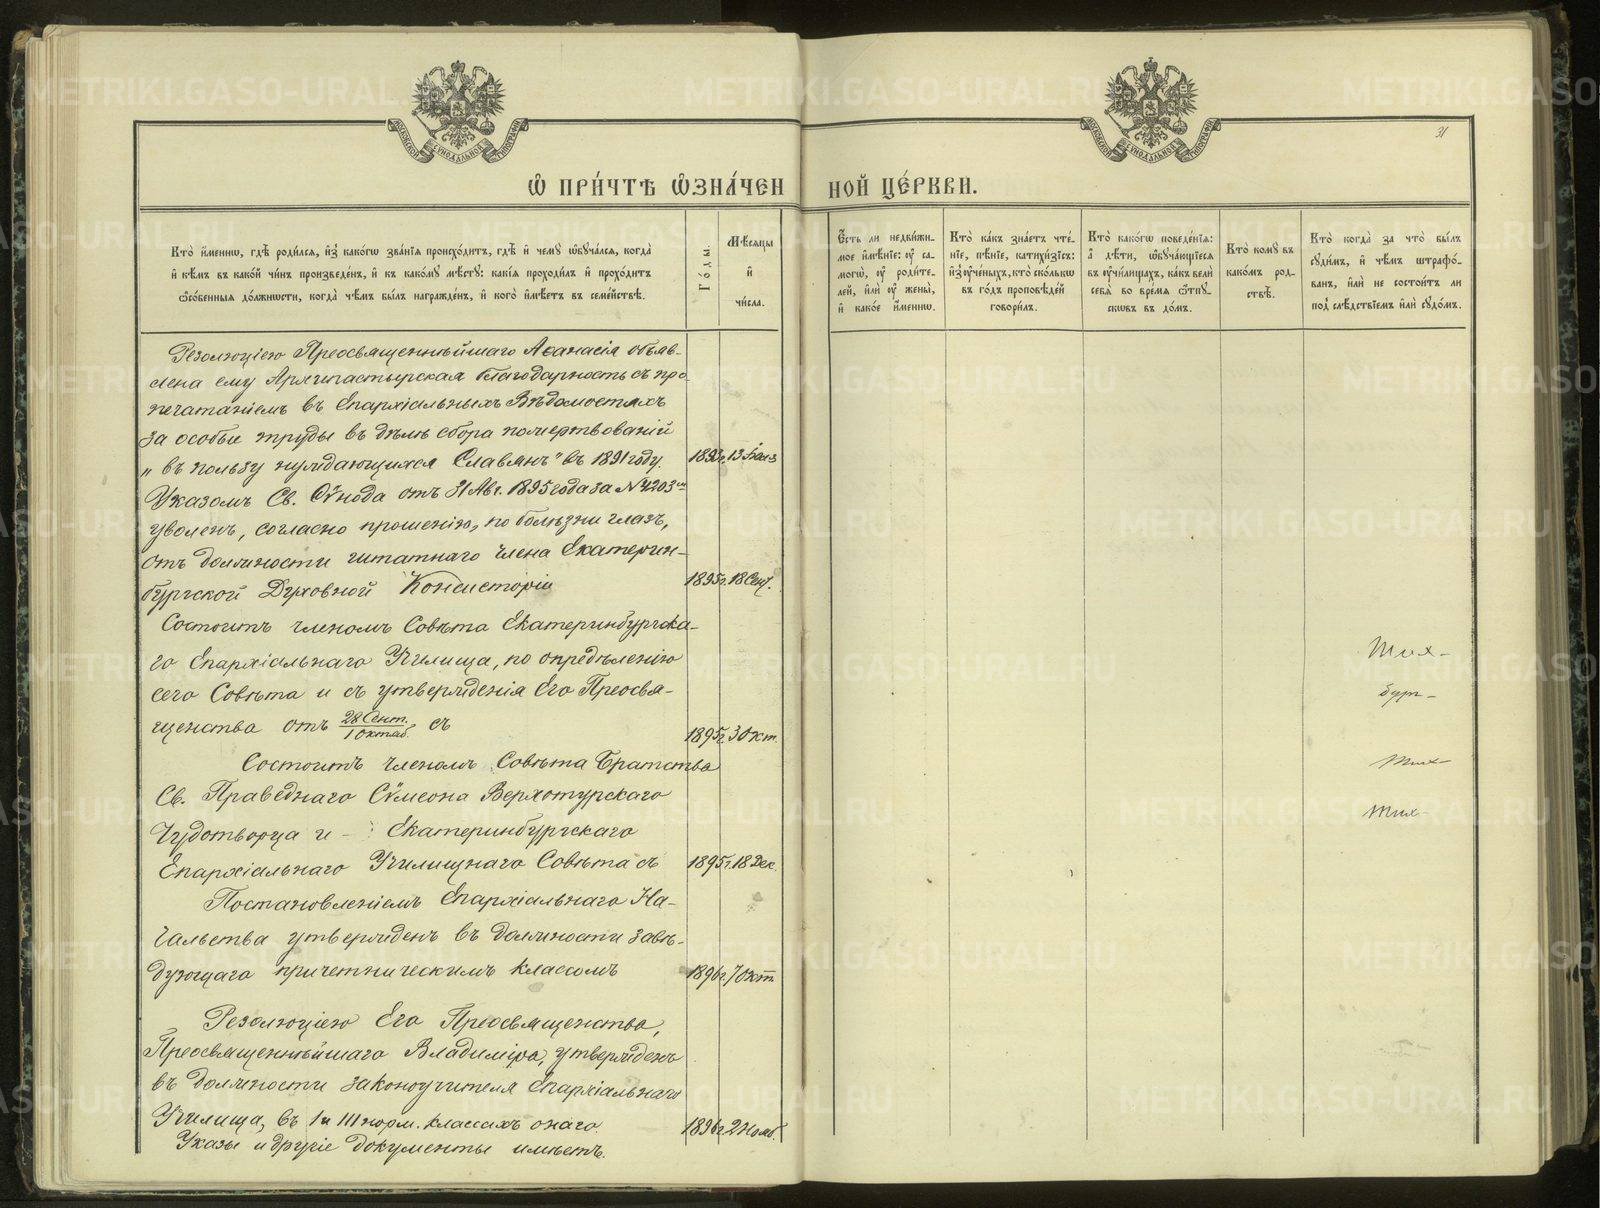 МОСКОВСКОЙ СѴНОДАЛЬНОЙ ТИПОГРАФІИ
МОСКОВСКОЙ СѴНОДАЛЬНОЙ ТИПОГРАФІИ
31
Ѡ ПРИ́ЧТѢ ѠЗНА́ЧЕННОЙ ЦЕ́РКВИ.
Кто̀ и҆́менно, гдѣ̀ роди́лся, и҆з̾ како́гѡ зва́нїѧ происхо́дитъ, гдѣ̀ и҆ чемꙋ̀ ѡ҆бꙋча́лся, когда̀
и҆ кѣ́мъ въ како́й чи́нъ произведе́нъ, и҆ къ како́мꙋ мѣ́стꙋ: какі̑ѧ проходи́лъ и҆ прохо́дитъ
ѻ҆со́бенныѧ до́лжности, когда̀ чѣ́мъ бы́лъ награжде́нъ, и҆ кого̀ и҆мѣ́етъ въ семе́йствѣ.
Го́ды.
Мѣ́сѧцы
и҆
чи́сла.
Є҆́сть ли недви́жи-
мое и҆мѣ́нїе: ᲂу҆ са-
могѡ̀, ᲂу҆ роди́те-
лей, и҆лѝ ᲂу҆ жены̀,
и҆ како́е и҆́менно.
Кто̀ ка́къ зна́етъ чте́-
нїе, пѣ́нїе, катихи́зїсъ:
и҆з̾ ᲂу҆че́ныхъ, кто̀ ско́лькѡ
въ го́дъ проповѣ́дей
говори́лъ.
Кто̀ како́гѡ поведе́нїѧ:
а҆ дѣ́ти, ѡ҆бꙋча́ющїесѧ
въ ᲂу҆чи́лищахъ, ка́къ велѝ
себѧ̀ во вре́мѧ ѿпꙋ-
скѡвъ въ до́мъ.
Кто̀ комꙋ̀ въ
како́мъ род-
ствѣ̀.
Кто̀ когда̀ за что̀ бы́лъ
сꙋди́мъ, и҆ чѣ́мъ штрафо́-
ванъ, и҆лѝ не состои́тъ ли
под̾ слѣ́дствїемъ и҆лѝ сꙋдо́мъ.
Резолюціею Преосвященнѣйшаго Аѳанасія объяв-
лена ему Архипастырская благодарность съ про-
печатаніемъ въ Епархіальныхъ Вѣдомостяхъ
за особые труды въ дѣлѣ сбора пожертвованій
„въ пользу нуждающихся Славянъ" въ 1891 году.
1893 г.
Указомъ Св. Сѵнода отъ 31 Авг. 1895 года за № 4203
уволенъ, согласно прошенію, по болѣзни глазъ,
отъ должности штатнаго члена Екатерин-
бургской Духовной Консисторіи
1895 г. 18 Сент.
Состоитъ членомъ Совѣта Екатеринбургска-
го Епархіальнаго Училища, по опредѣленію
сего Совѣта и съ утвержденія Его Преосвя-
щенства отъ 28 Сент. / 1 Октяб. съ
1895 г. 3 Окт.
Состоитъ членомъ Совѣта Братства
Св. Праведнаго Сѵмеона Верхотурскаго
Чудотворца и Екатеринбургскаго
Епархіальнаго Училищнаго Совѣта съ
1895 г. 18 Дек.
Постановленіемъ Епархіальнаго На-
чальства утвержденъ въ должности завѣ-
дующаго причетническимъ классомъ
1896 г. 7 Окт
Резолюціею Его Преосвященства,
Преосвященнѣйшаго Владиміра, утвержденъ
въ должности законоучителя Епархіальнаго
Училища, въ I и III норм. классахъ онаго
1896 г. 2 Нояб.
Указы и другіе документы имѣетъ.
METRIKI.GASO-URAL.RU